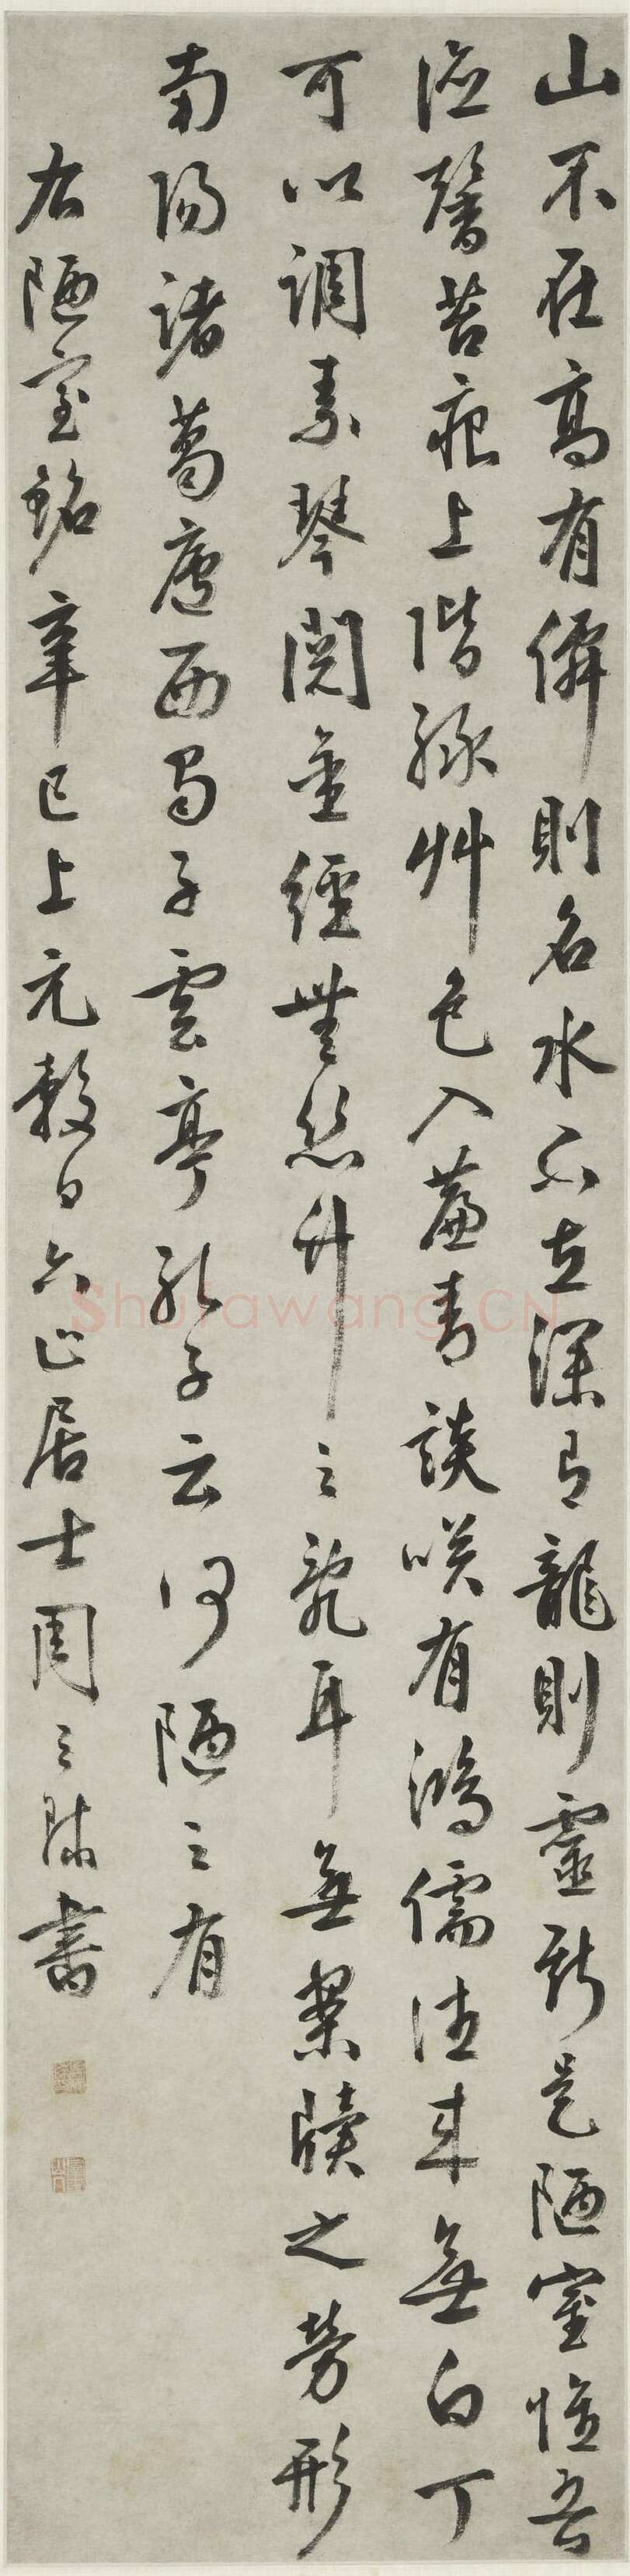 山不在高有僊則名水不在深有龍則靈斯是陋室惟吾
德馨苔痕上階綠艸色入簾青談咲有鴻儒往來無白丁
可以調素琴閱金經無絲竹之亂耳無案牘之勞形
南陽諸葛廬西蜀子雲亭孔子云何陋之有
右陋室銘辛巳上元穀日六止居士周之 書
Shufawang.CN